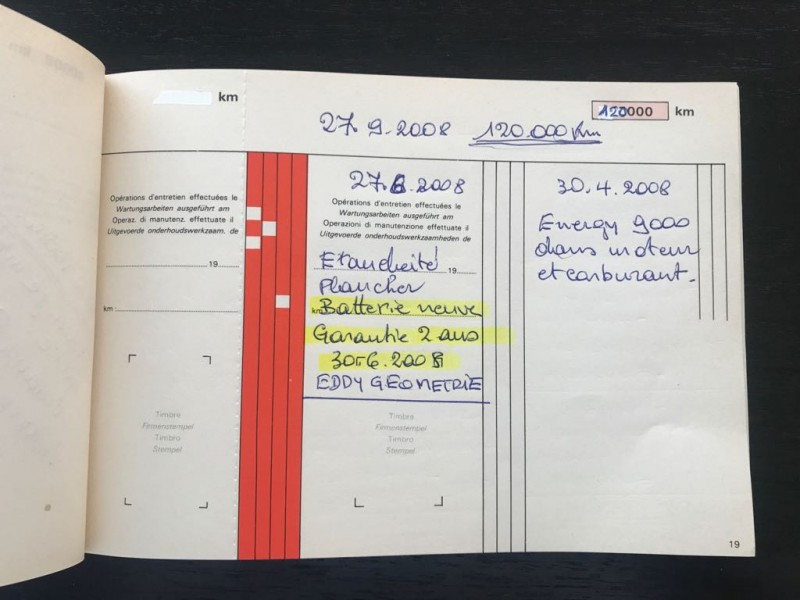 km
120000 km
27.9.2008 120.000 Km
Opérations d'entretien effectuées le
Wartungsarbeiten ausgeführt am
Operaz. di manutenz. effettuate il
Uitgevoerde onderhoudswerkzaam. de
19
km:
Timbre
Firmenstempel
Timbro
Stempel
27.6.2008
Opérations d'entretien effectuées le
Wartungsarbeiten ausgeführt am
Operazioni di manutenzione effettuate il
Uitgevoerde onderhoudswerkzaamheden de
Etancheité 19
Plancher
Batterie neuve
Garantie 2 ans
30.6.2008
EDDY GEOMETRIE
Timbre
Firmenstempel
Timbro
Stempel
30.4.2008
Energy 9000
dans moteur
et carburant.
19